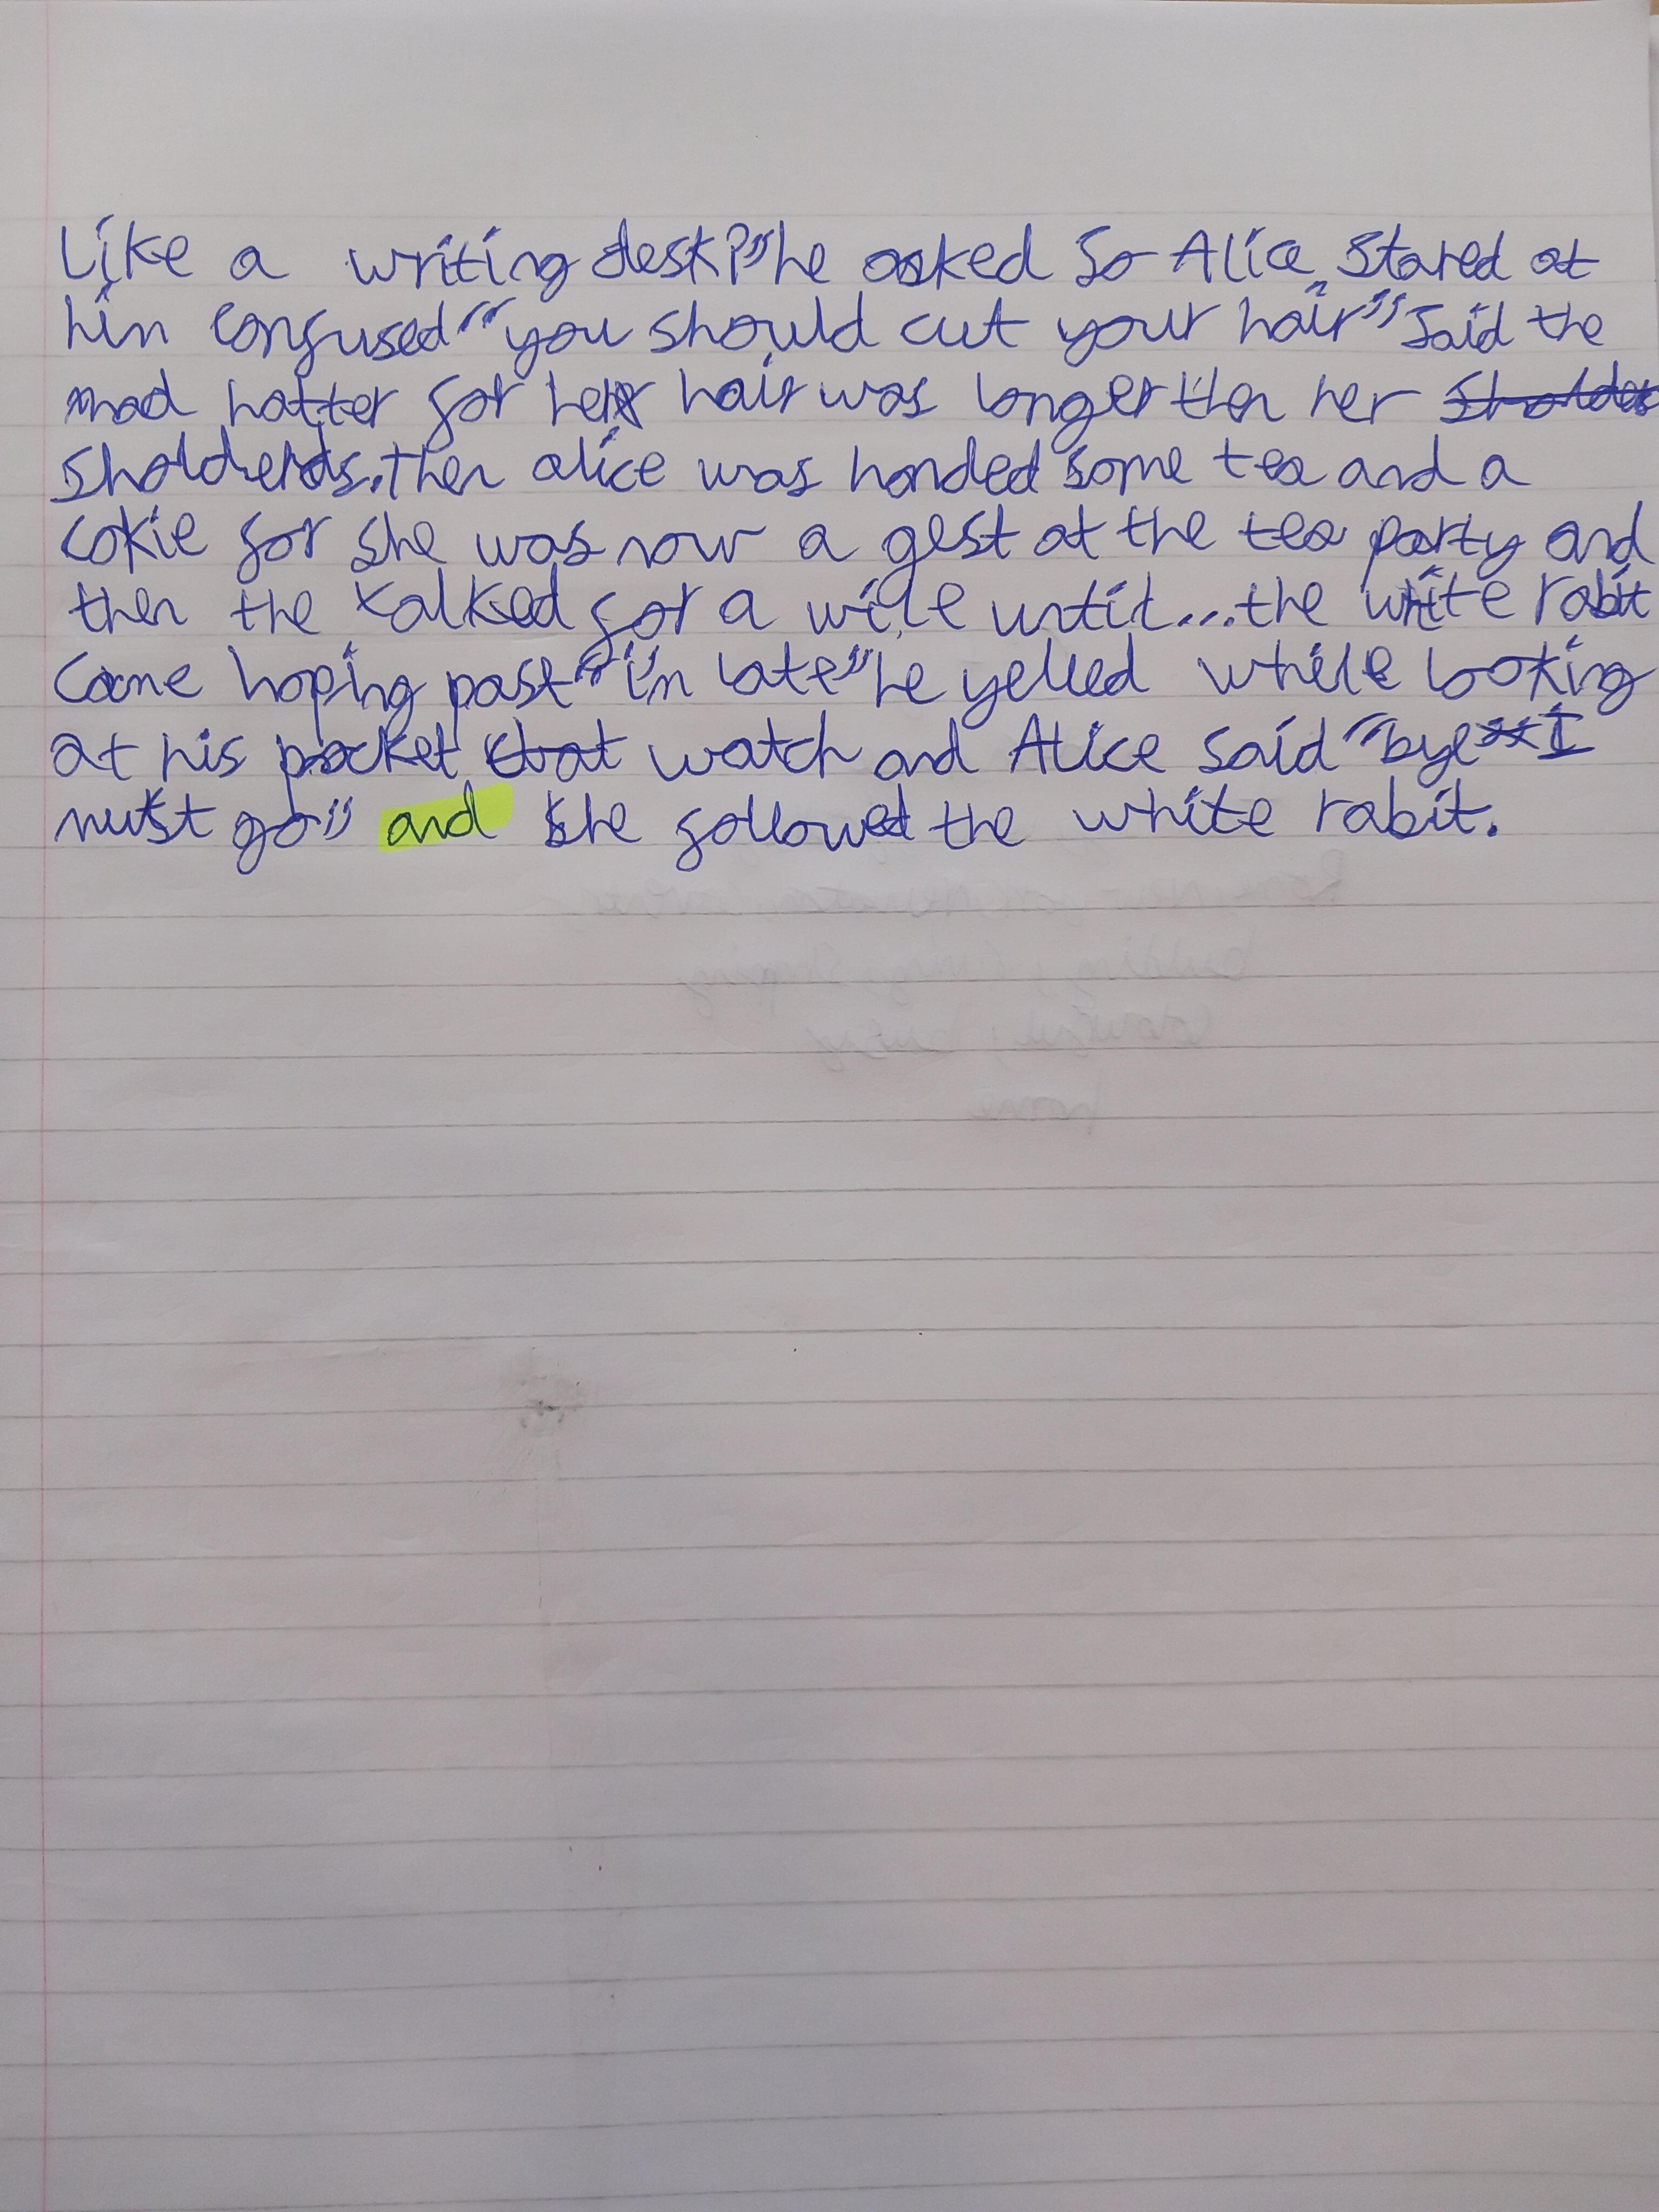 Like a writing desk?" he asked So Alice stared at
him confused "you should cut your hair" said the
mad hatter for her hair was longer then her sholders
sholderds. then alice was handed some tea and a
cokie for she was now a gest at the tea party and
then the talked for a wile until... the white rabit
came hoping past "i'm late" he yelled while looking
at his pocket watch and Alice said "bye I
must go" and she followed the white rabit.